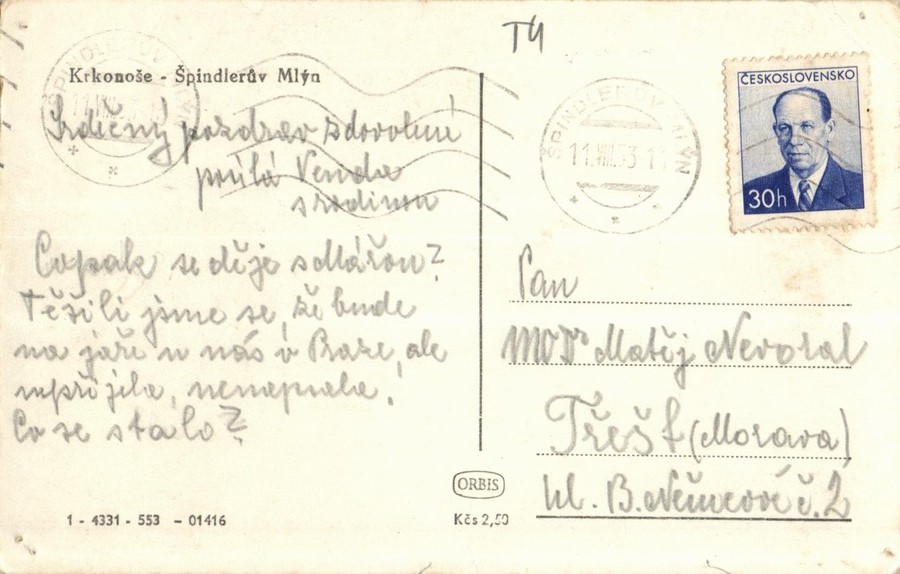 T4
Krkonoše - Špindlerův Mlýn
ŠPINDLERŮV MLÝN
11.VIII.53-11
ČESKOSLOVENSKO
30h
Srdečný pozdrav z dovolené
posílá Venda
s rodinou
Copak se děje s
Těšili jsme se, že bude
na jaře u nás v Praze, ale
nepřijela, nenapsala!
Co se stalo?
Pan
MUDr Matěj Nevoral
Třešť (Morava)
Ul. B. Němcové č. 2
ORBIS
1 - 4331 - 553 - 01416
Kčs 2,50